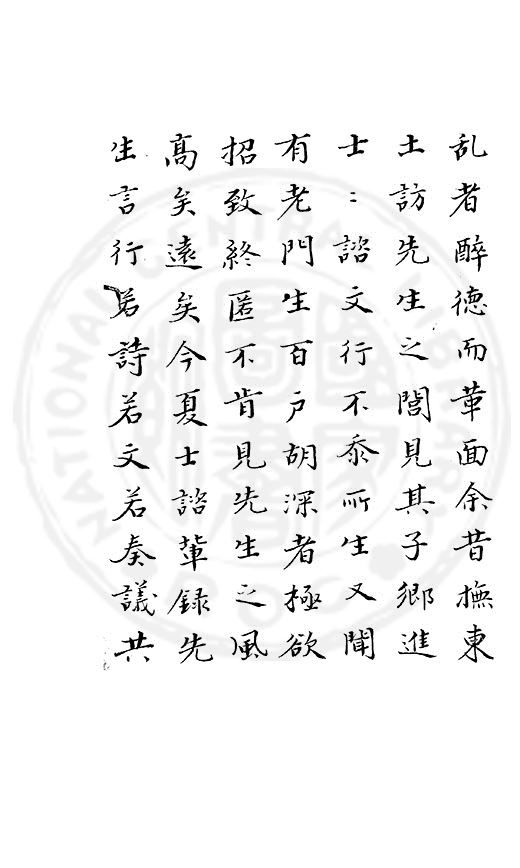 乱者醉德而革面余昔撫東
土訪先生之閭見其子鄉進
士〻諮文行不忝所生又聞
有老門生百户胡深者極欲
招致終匿不肯見先生之風
髙矣遠矣今夏士諮輩録先
生言行若詩若文若奏議共
NATIONAL CENTRAL LIBRARY